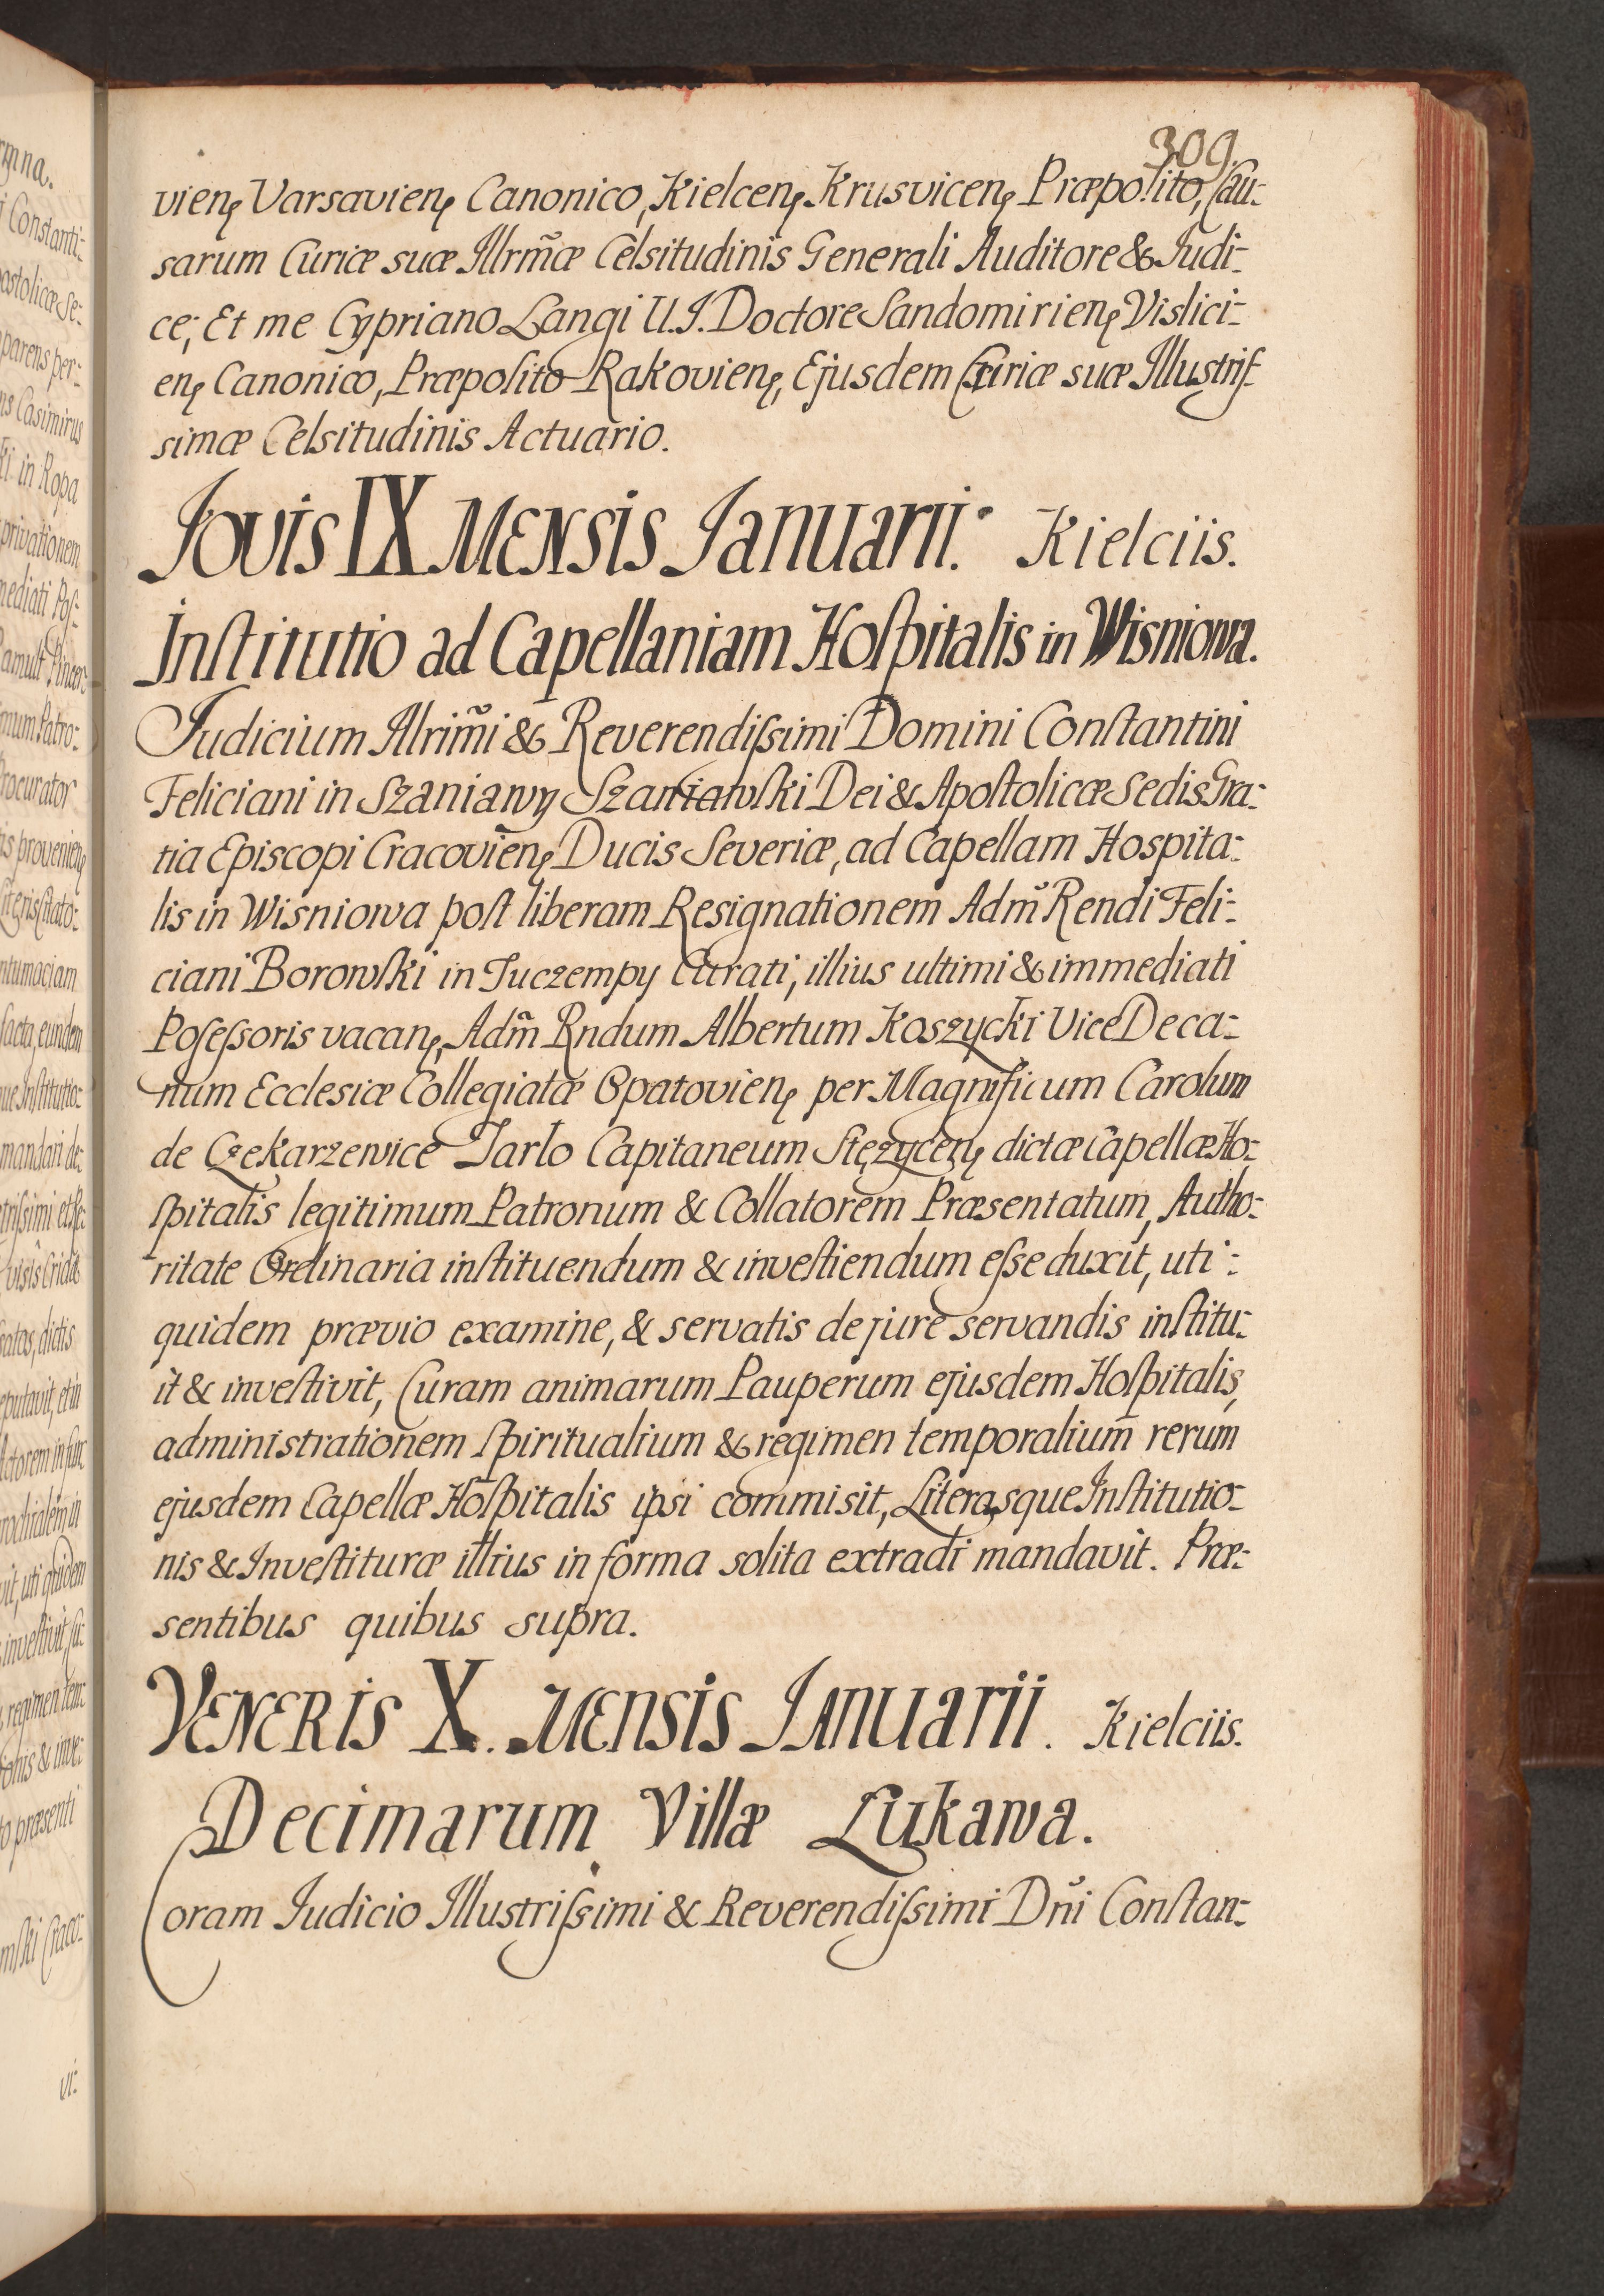 309.
vieñ Varsavieñ Canonico, Kielceñ Krusviceñ Præposito, Cau-
sarum Curiæ suæ Illrmæ Celsitudinis Generali Auditore & Judi-
ce; Et me Cypriano Langi U.J. Doctore Sandomirieñ Vislici-
eñ Canonico, Præposito Rakovieñ, Ejusdem Curiæ suæ Illustris-
simæ Celsitudinis Actuario.
Jovis IX Mensis Januarii. Kielciis.
Institutio ad Capellaniam Hospitalis in Wisniowa.
Judicium Illrimi & Reverendissimi Domini Constantini
Feliciani in Szaniawy Szaniawski Dei & Apostolicæ Sedis Gra-
tia Episcopi Cracovieñ Ducis Severiæ, ad Capellam Hospita-
lis in Wisniowa post liberam Resignationem Adm Rendi Feli-
ciani Borowski in Tuczempy Curati, illius ultimi & immediati
Possessoris vacañ, Adm Rndum Albertum Koszycki ViceDeca-
num Ecclesiæ Collegiatæ Opatovieñ per Magnificum Carolum
de Czekarzewice Tarlo Capitaneum Stężyceñ dictæ Capellæ Ho-
spitalis legitimum Patronum & Collatorem Præsentatum, Autho-
ritate Ordinaria instituendum & investiendum esse duxit, uti-
quidem prævio examine, & servatis de jure servandis institu-
it & investivit, Curam animarum Pauperum ejusdem Hospitalis,
administrationem spiritualium & regimen temporalium rerum
ejusdem Capellæ Hospitalis ipsi commisit, Literasque Institutio-
nis & Investituræ illius in forma solita extradi mandavit. Præ-
sentibus quibus supra.
Veneris X. Mensis Januarii. Kielciis.
Decimarum Villæ Lukawa.
Coram Judicio Illustrissimi & Reverendissimi Dni Constan-